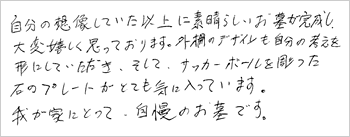 自分の想像していた以上に素晴らしいお墓が完成し、
大変嬉しく思っております。外柵のデザインも自分の考えを
形にしていただき、そして、サッカーボールを彫った
石のプレートがとても気に入っています。
我が家にとって、自慢のお墓です。